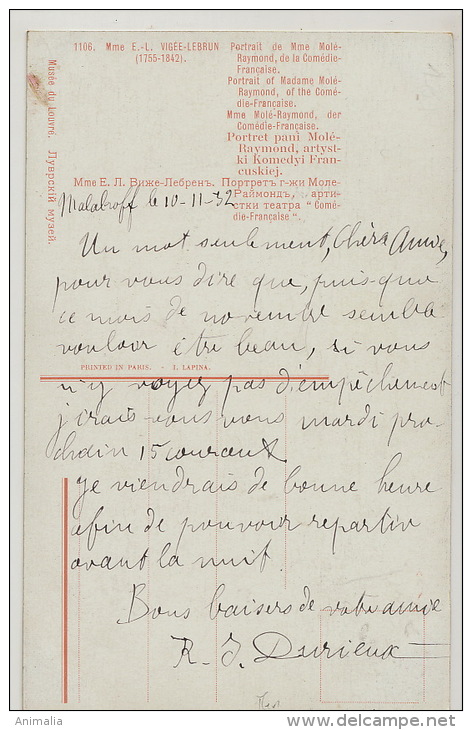 1106. Mme E.-L. VIGÉE-LEBRUN
(1755-1842).
Portrait de Mme Molé-
Raymond, de la Comédie-
Française.
Portrait of Madame Molé-
Raymond, of the Comé-
die-Française.
Mme Molé-Raymond, der
Comédie-Française.
Portret pani Molé-
Raymond, artyst-
ki Komedyi Fran-
cuskiej.
Mme Е. Л. Виже-Лебренъ. Портретъ г-жи Моле-
Раймондъ, арти-
стки театра "Comé-
die-Française".
Musée du Louvre. Луврскій музей.
Malakoff le 10-11-32
Un mot seulement, Chère Amie,
pour vous dire que, puis-que
ce mois de novembre semble
vouloir être beau, si vous
PRINTED IN PARIS. - I. LAPINA.
n'y voyez pas d'empêchement
j'irais vous mardi pro-
chain 15 courant
Je viendrais de bonne heure
afin de pouvoir repartir
avant la nuit.
Bons baisers de votre amie
R. J. Durieux
Animalia
delcampe.net